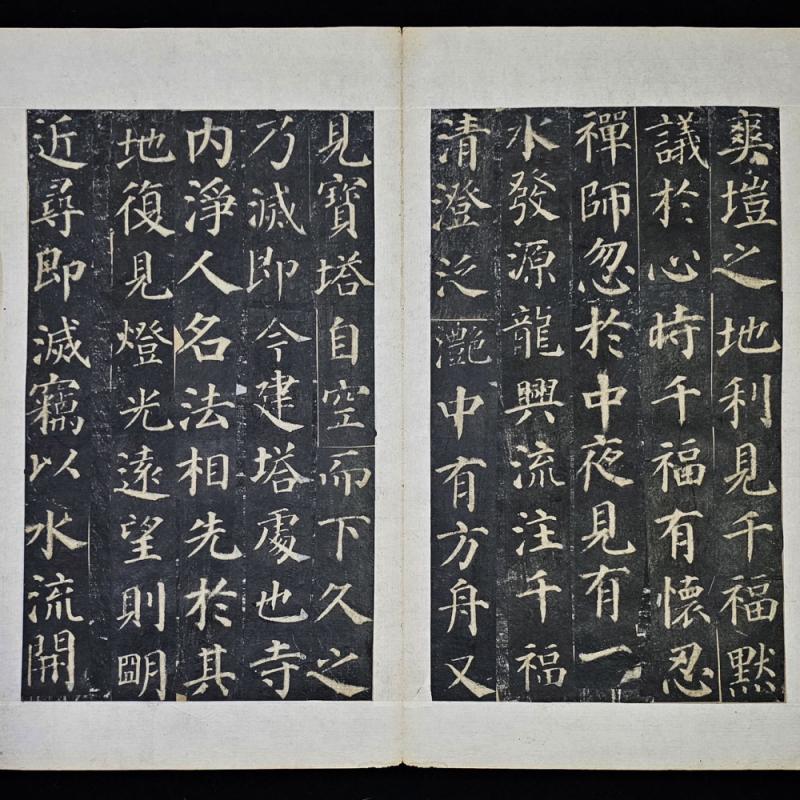 爽塏之地利見千福默
議於心時千福有懷忍
禪師忽於中夜見有一
水發源龍興流注千福
清澄泛灔中有方舟又
見寶塔自空而下久之
乃滅即今建塔處也寺
内淨人名法相先於其
地復見燈光遠望則明
近尋即滅竊以水流開